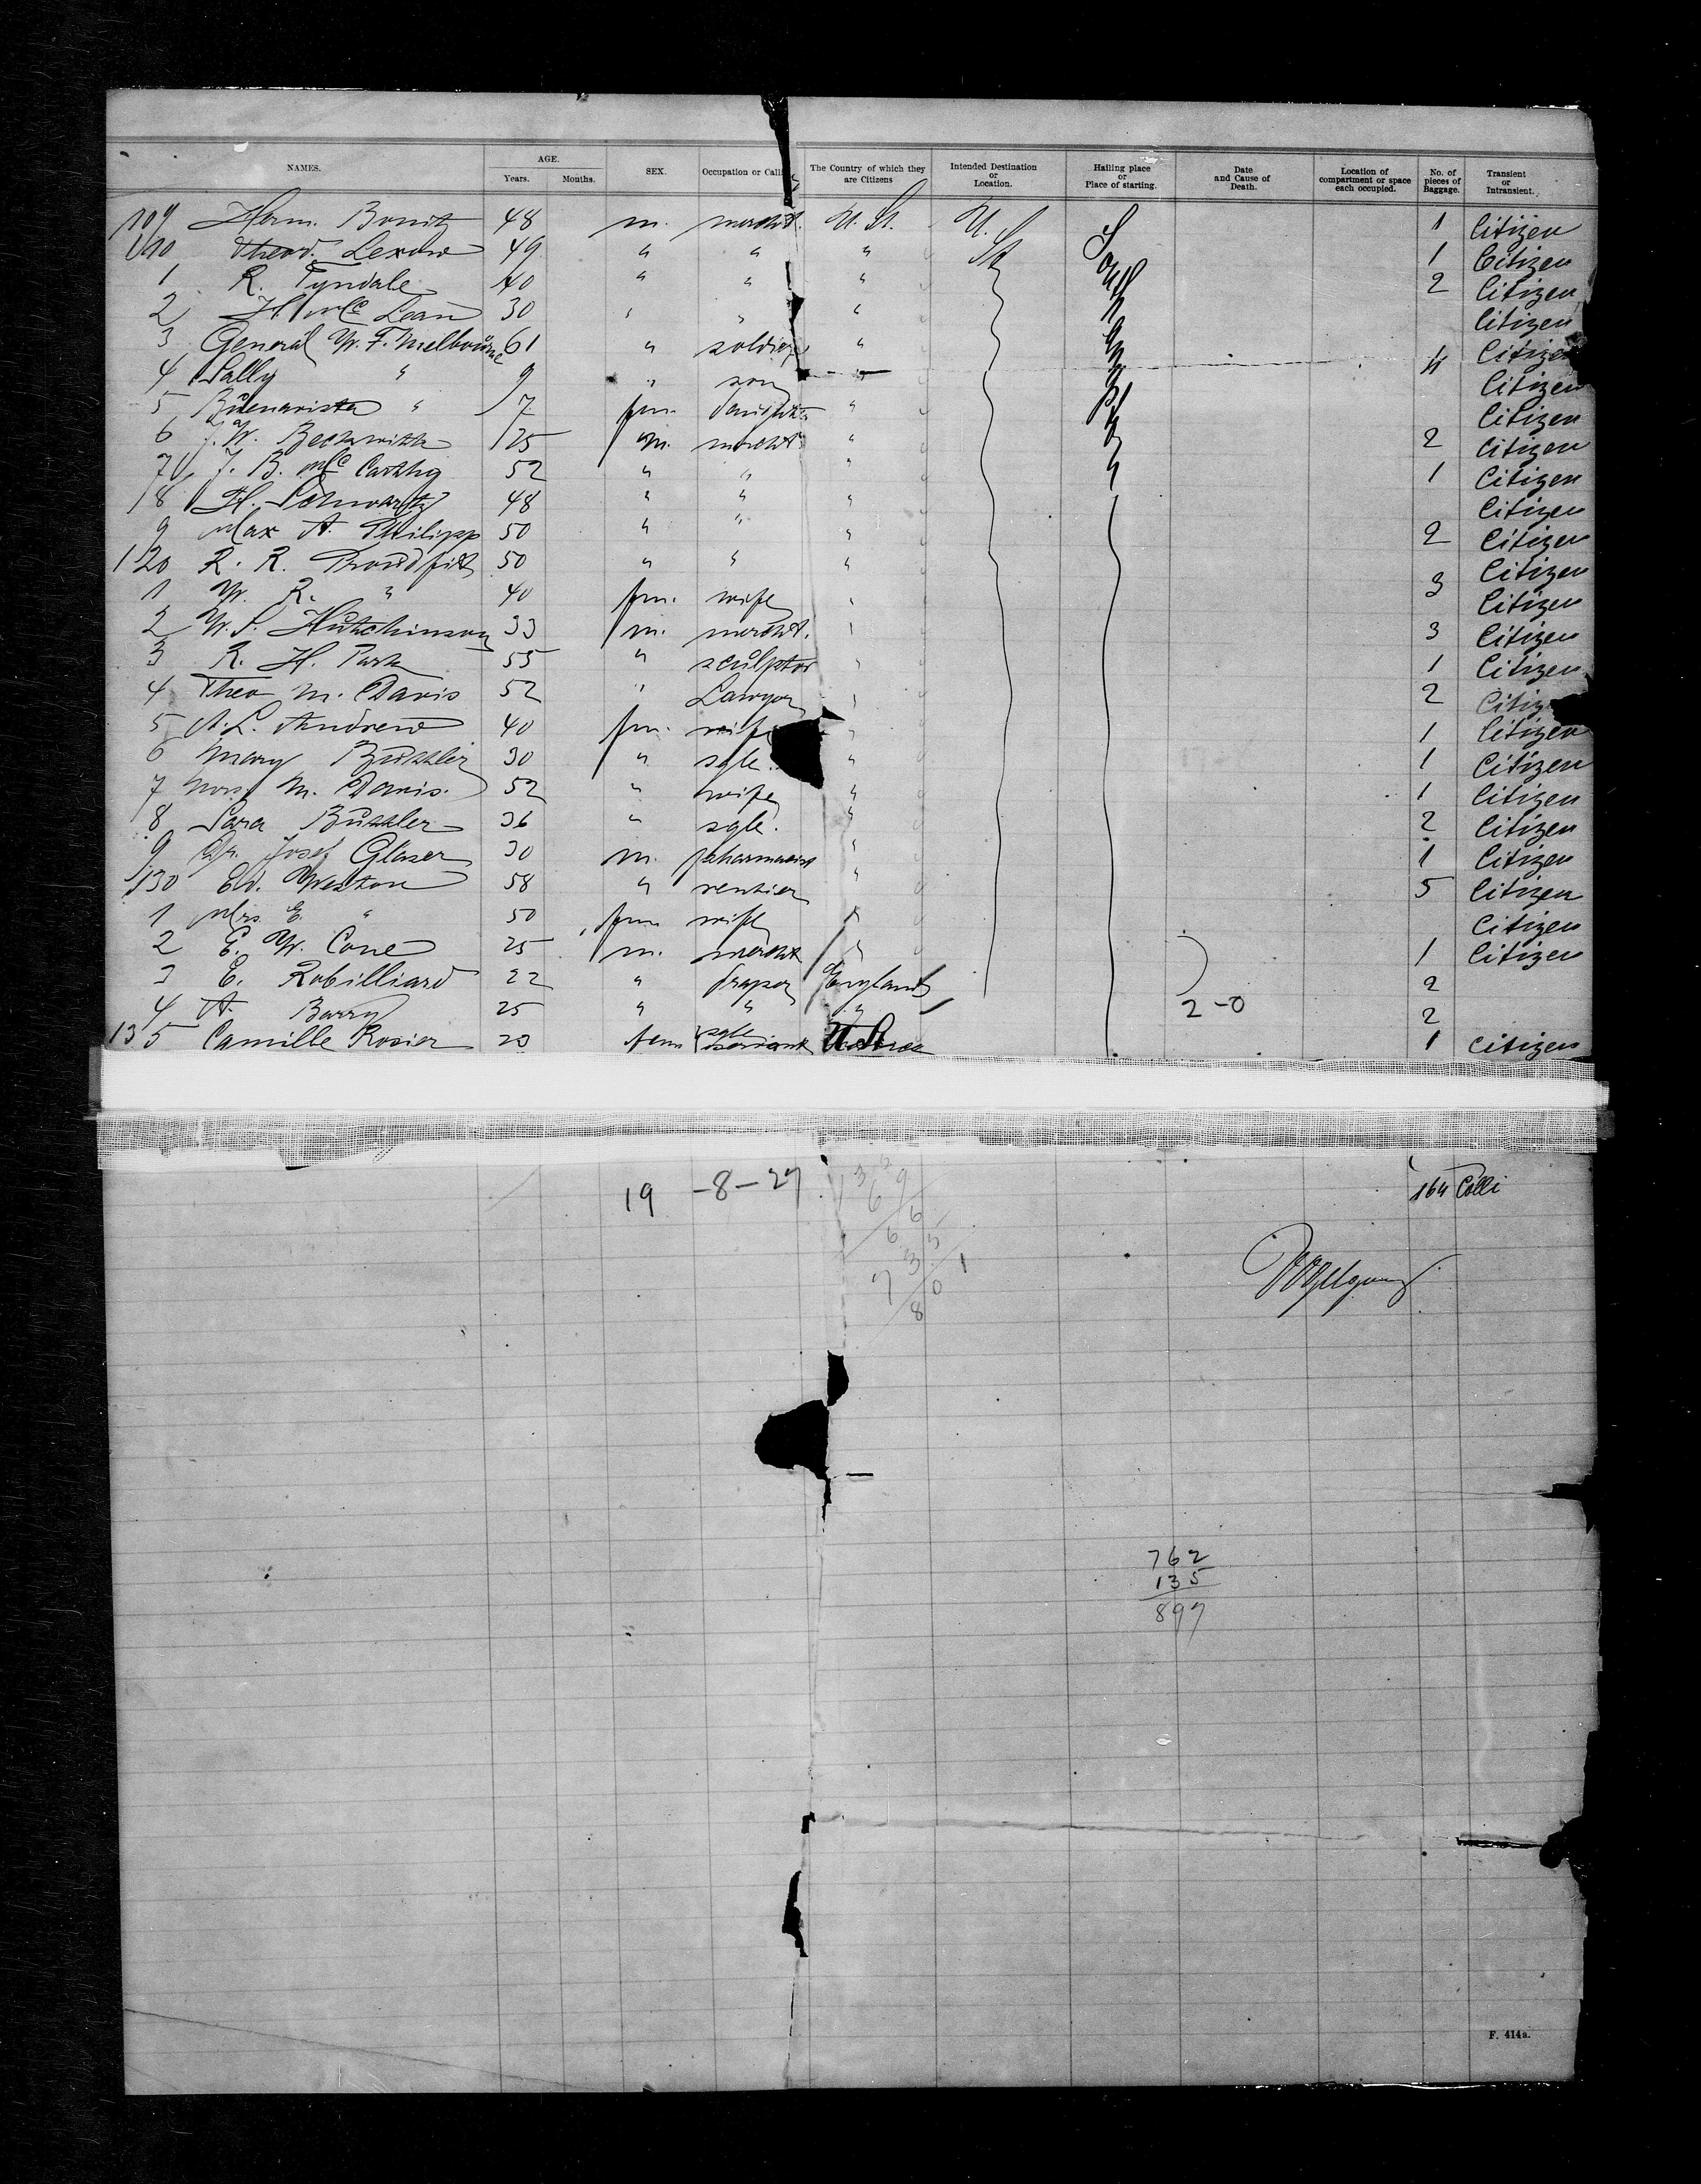 NAMES. AGE. Years. Months. SEX. Occupation or Calli The Country of which they are Citizens Intended Destination or Location. Hailing place or Place of starting. Date and Cause of Death. Location of compartment or space each occupied. No. of pieces of Baggage. Transient or Intransient.
109 Herm. Bonitz 48 m. mercht. U. St. U. St Southampton 1 Citizen
110 Theod. Lexow 49 " " " 1 Citizen
1 R. Tyndale 40 " " " 2 Citizen
2 H. Mc Lean 30 " " " Citizen
3 General W. F. Melbourne 61 " soldier " 4 Citizen
4 Sally " 9 " son " Citizen
5 Buenavista " 7 fm. daughter " Citizen
6 J. W. Beckwith 25 m. mercht. " 2 Citizen
7 J. B. Mc Carthy 52 " " " 1 Citizen
8 H. Schwartz 48 " " " Citizen
9 Max A. Philipp 50 " " " 2 Citizen
120 R. R. Proudfit 50 " " " Citizen
1 W. R. " 40 fm. wife " 3 Citizen
2 W. S. Hutchinson 33 m. mercht. " 3 Citizen
3 R. H. Park 55 " sculptor " 1 Citizen
4 Theo M. Davis 52 " Lawyer " 2 Citize
5 A. L. Andrew 40 fm. wife " 1 Citizen
6 Mary Buttler 30 " sgle. " 1 Citizen
7 Mrs. M. Davis. 52 " wife " 1 Citizen
8 Sara Buttler 36 " sgle. " 2 Citizen
9 Josef Glaser 30 m. pharmacist " 1 Citizen
130 Ed. Weston 58 " rentier " 5 Citizen
1 Mrs. E. " 50 fm wife " Citizen
2 E. W. Cone 25 m. mercht " 1 Citizen
3 E. Robilliard 22 " draper England 2
4 A. Barry 25 " " " 2-0 2
135 Camille Rosier 20 fem sgle servant U St 1 Citizen
19 -8-27 164 Colli
762
135
897
F. 414a.